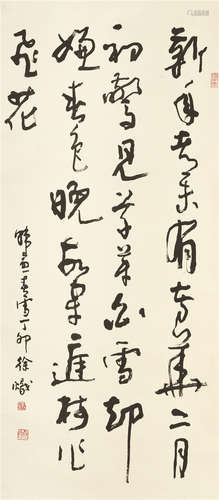 新年都未有芳华二月
初惊见草芽白雪却
嫌春色晚故穿庭树作
飞花
韩愈春雪丁卯徐炽